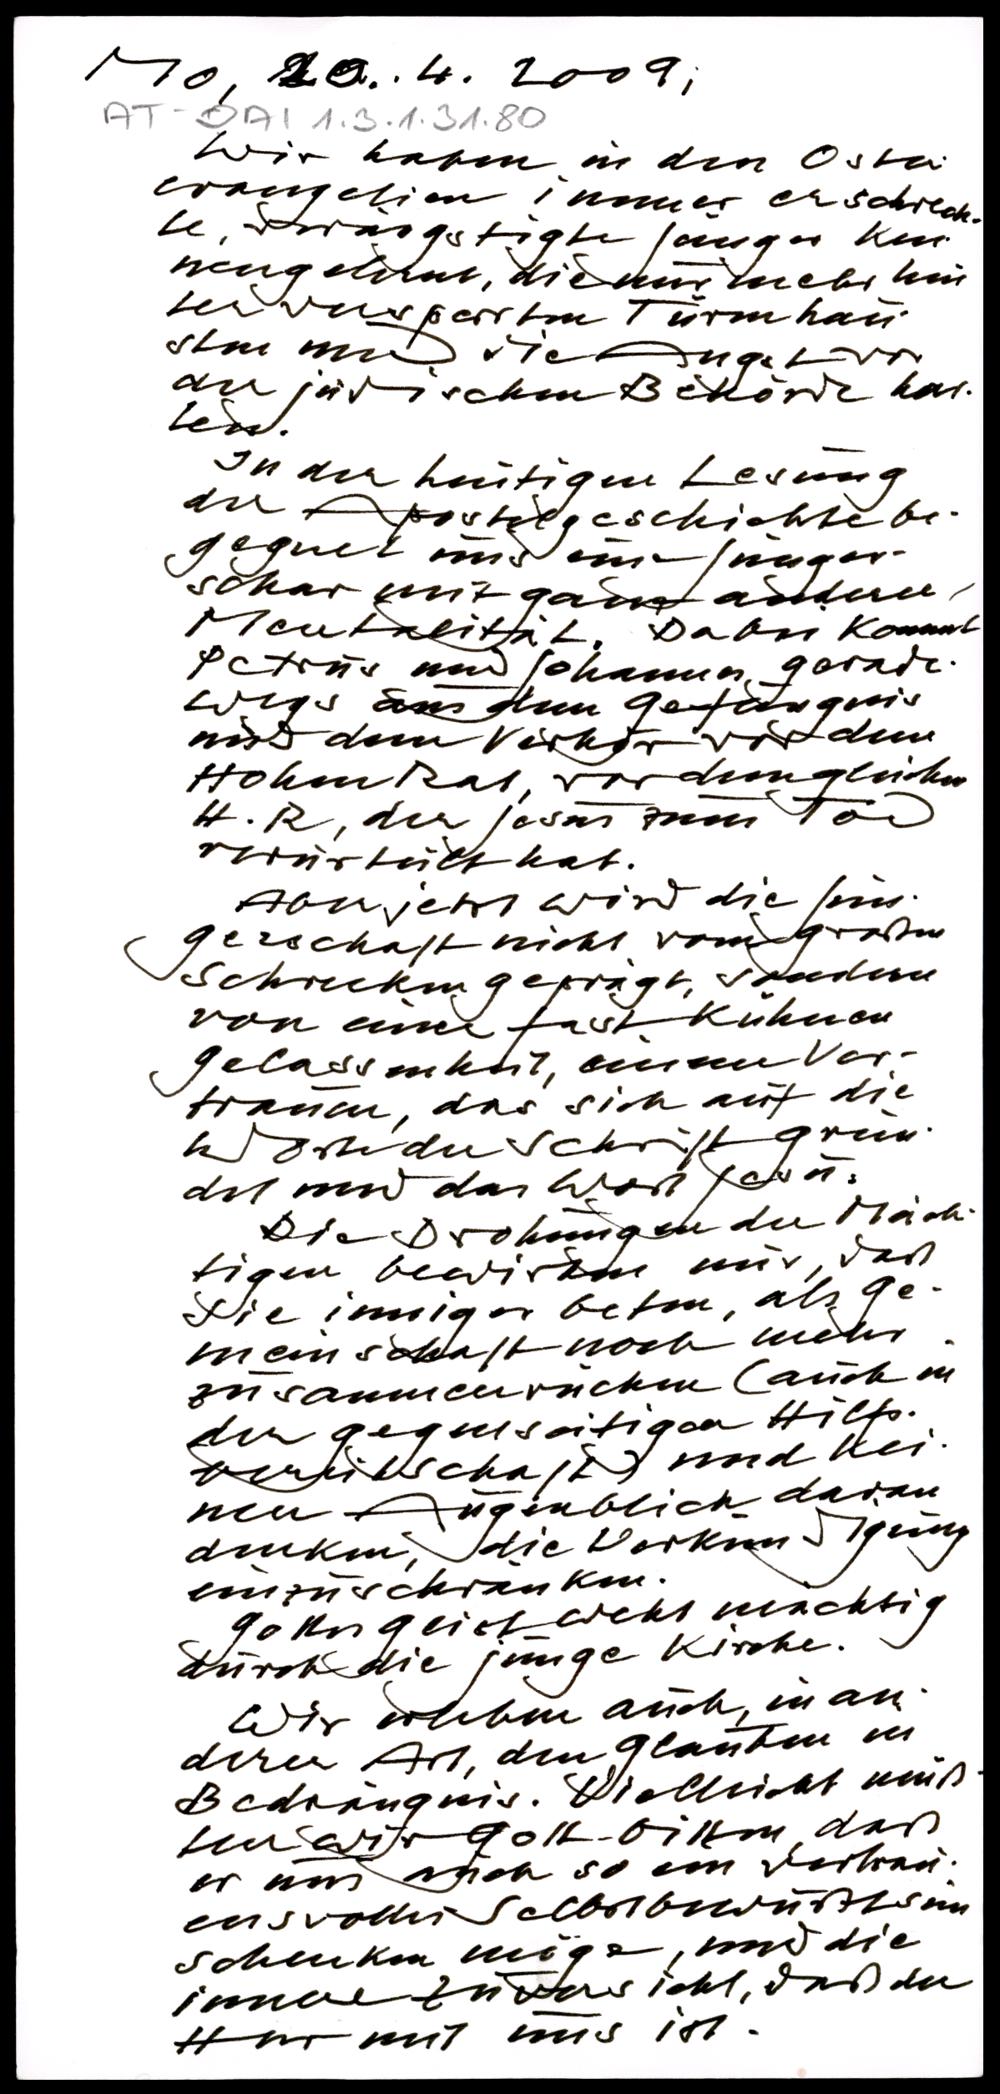 Mo, 20. 4. 2009;
AT-DAI 1.3.1.31.80
Wir haben in den Oster-
evangelien immer erschreck-
te, verängstigte Jünger ken-
nengelernt, die nur mehr hin-
ter versperrten Türen hau-
sten und die Angst vor
der jüdischen Behörde hat-
ten.
In der heutigen Lesung
der Apostelgeschichte be-
gegnet uns eine Jünger-
schar mit ganz anderer
Mentalität. Dabei kommt
Petrus und Johannes gerade-
wegs aus dem Gefängnis
und dem Verhör vor dem
Hohen Rat, vor dem gleichen
H. R, der Jesus zum Tod
verurteilt hat.
Aber jetzt wird die Jün-
gerschaft nicht vom großen
Schrecken geprägt, sondern
von einer fast kühnen
Gelassenheit, einem Ver-
trauen, das sich auf die
Worte der Schrift grün-
det und das Wort Jesu.
Die Drohungen der Mäch-
tigen bewirken nur, daß
sie inniger beten, als Ge-
meinschaft noch mehr
zusammenrücken (auch in
der gegenseitigen Hilfs-
bereitschaft) und kei-
nen Augenblick daran
denken, die Verkündigung
einzuschränken.
Gottes Geist weht mächtig
durch die junge Kirche.
Wir erleben auch, in an-
derer Art, den Glauben in
Bedrängnis. Vielleicht müß-
ten wir Gott bitten, daß
er uns auch so ein vertrau-
ensvolles Selbstbewußtsein
schenken möge, und die
innere Zuversicht, daß der
Herr mit uns ist.